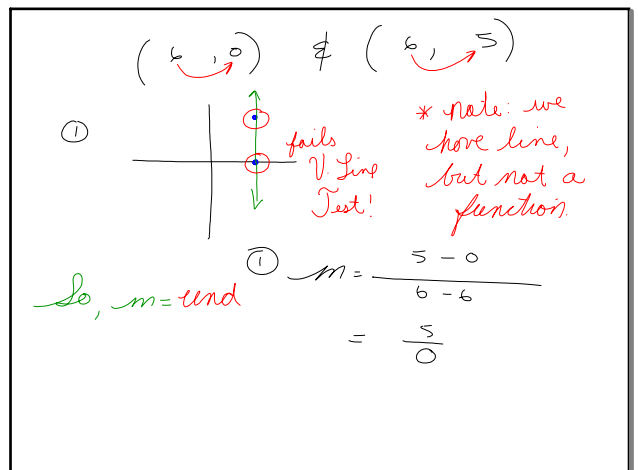 (6, 0) & (6, 5)
①
fails
V. Line
Test!
* note: we
have line,
but not a
function.
① m = 5 - 0 / 6 - 6
= 5 / 0
So, m = und